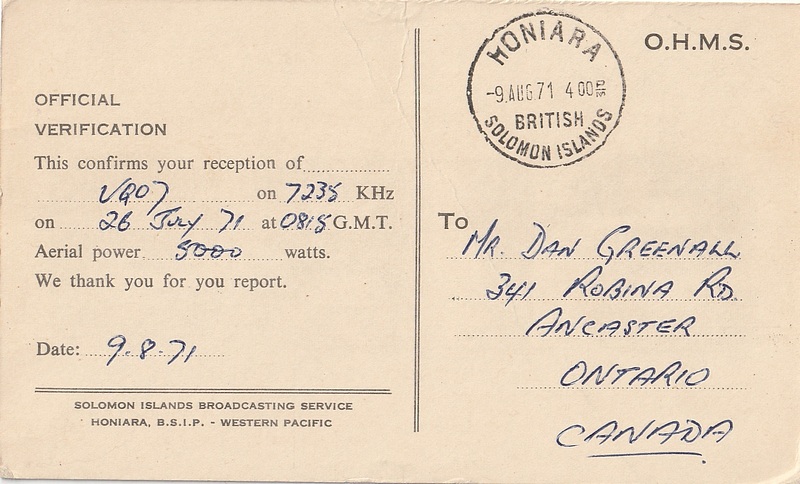 OFFICIAL
VERIFICATION
This confirms your reception of
VQO7 on 7235 KHz
on 26 July 71 at 0815 G.M.T.
Aerial power 5000 watts.
We thank you for you report.
Date: 9.8.71
SOLOMON ISLANDS BROADCASTING SERVICE
HONIARA, B.S.I.P. - WESTERN PACIFIC
HONIARA
-9 AUG 71 4 00
BRITISH
SOLOMON ISLANDS
O.H.M.S.
To
MR. DAN GREENALL
341 ROBINA RD.
ANCASTER
ONTARIO
CANADA